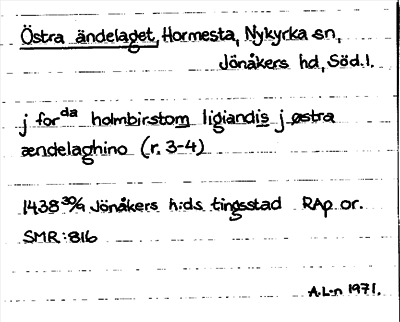 Östra ändelaget, Hormesta, Nykyrka sn,
Jönåkers hd, Söd.l.
j for da holmbirstom ligiandis j østra
ændelaghino (r. 3-4)
1438 30/9 Jönåkers h:ds tingsstad RAp or.
SMR:816
A.L-n 1971.